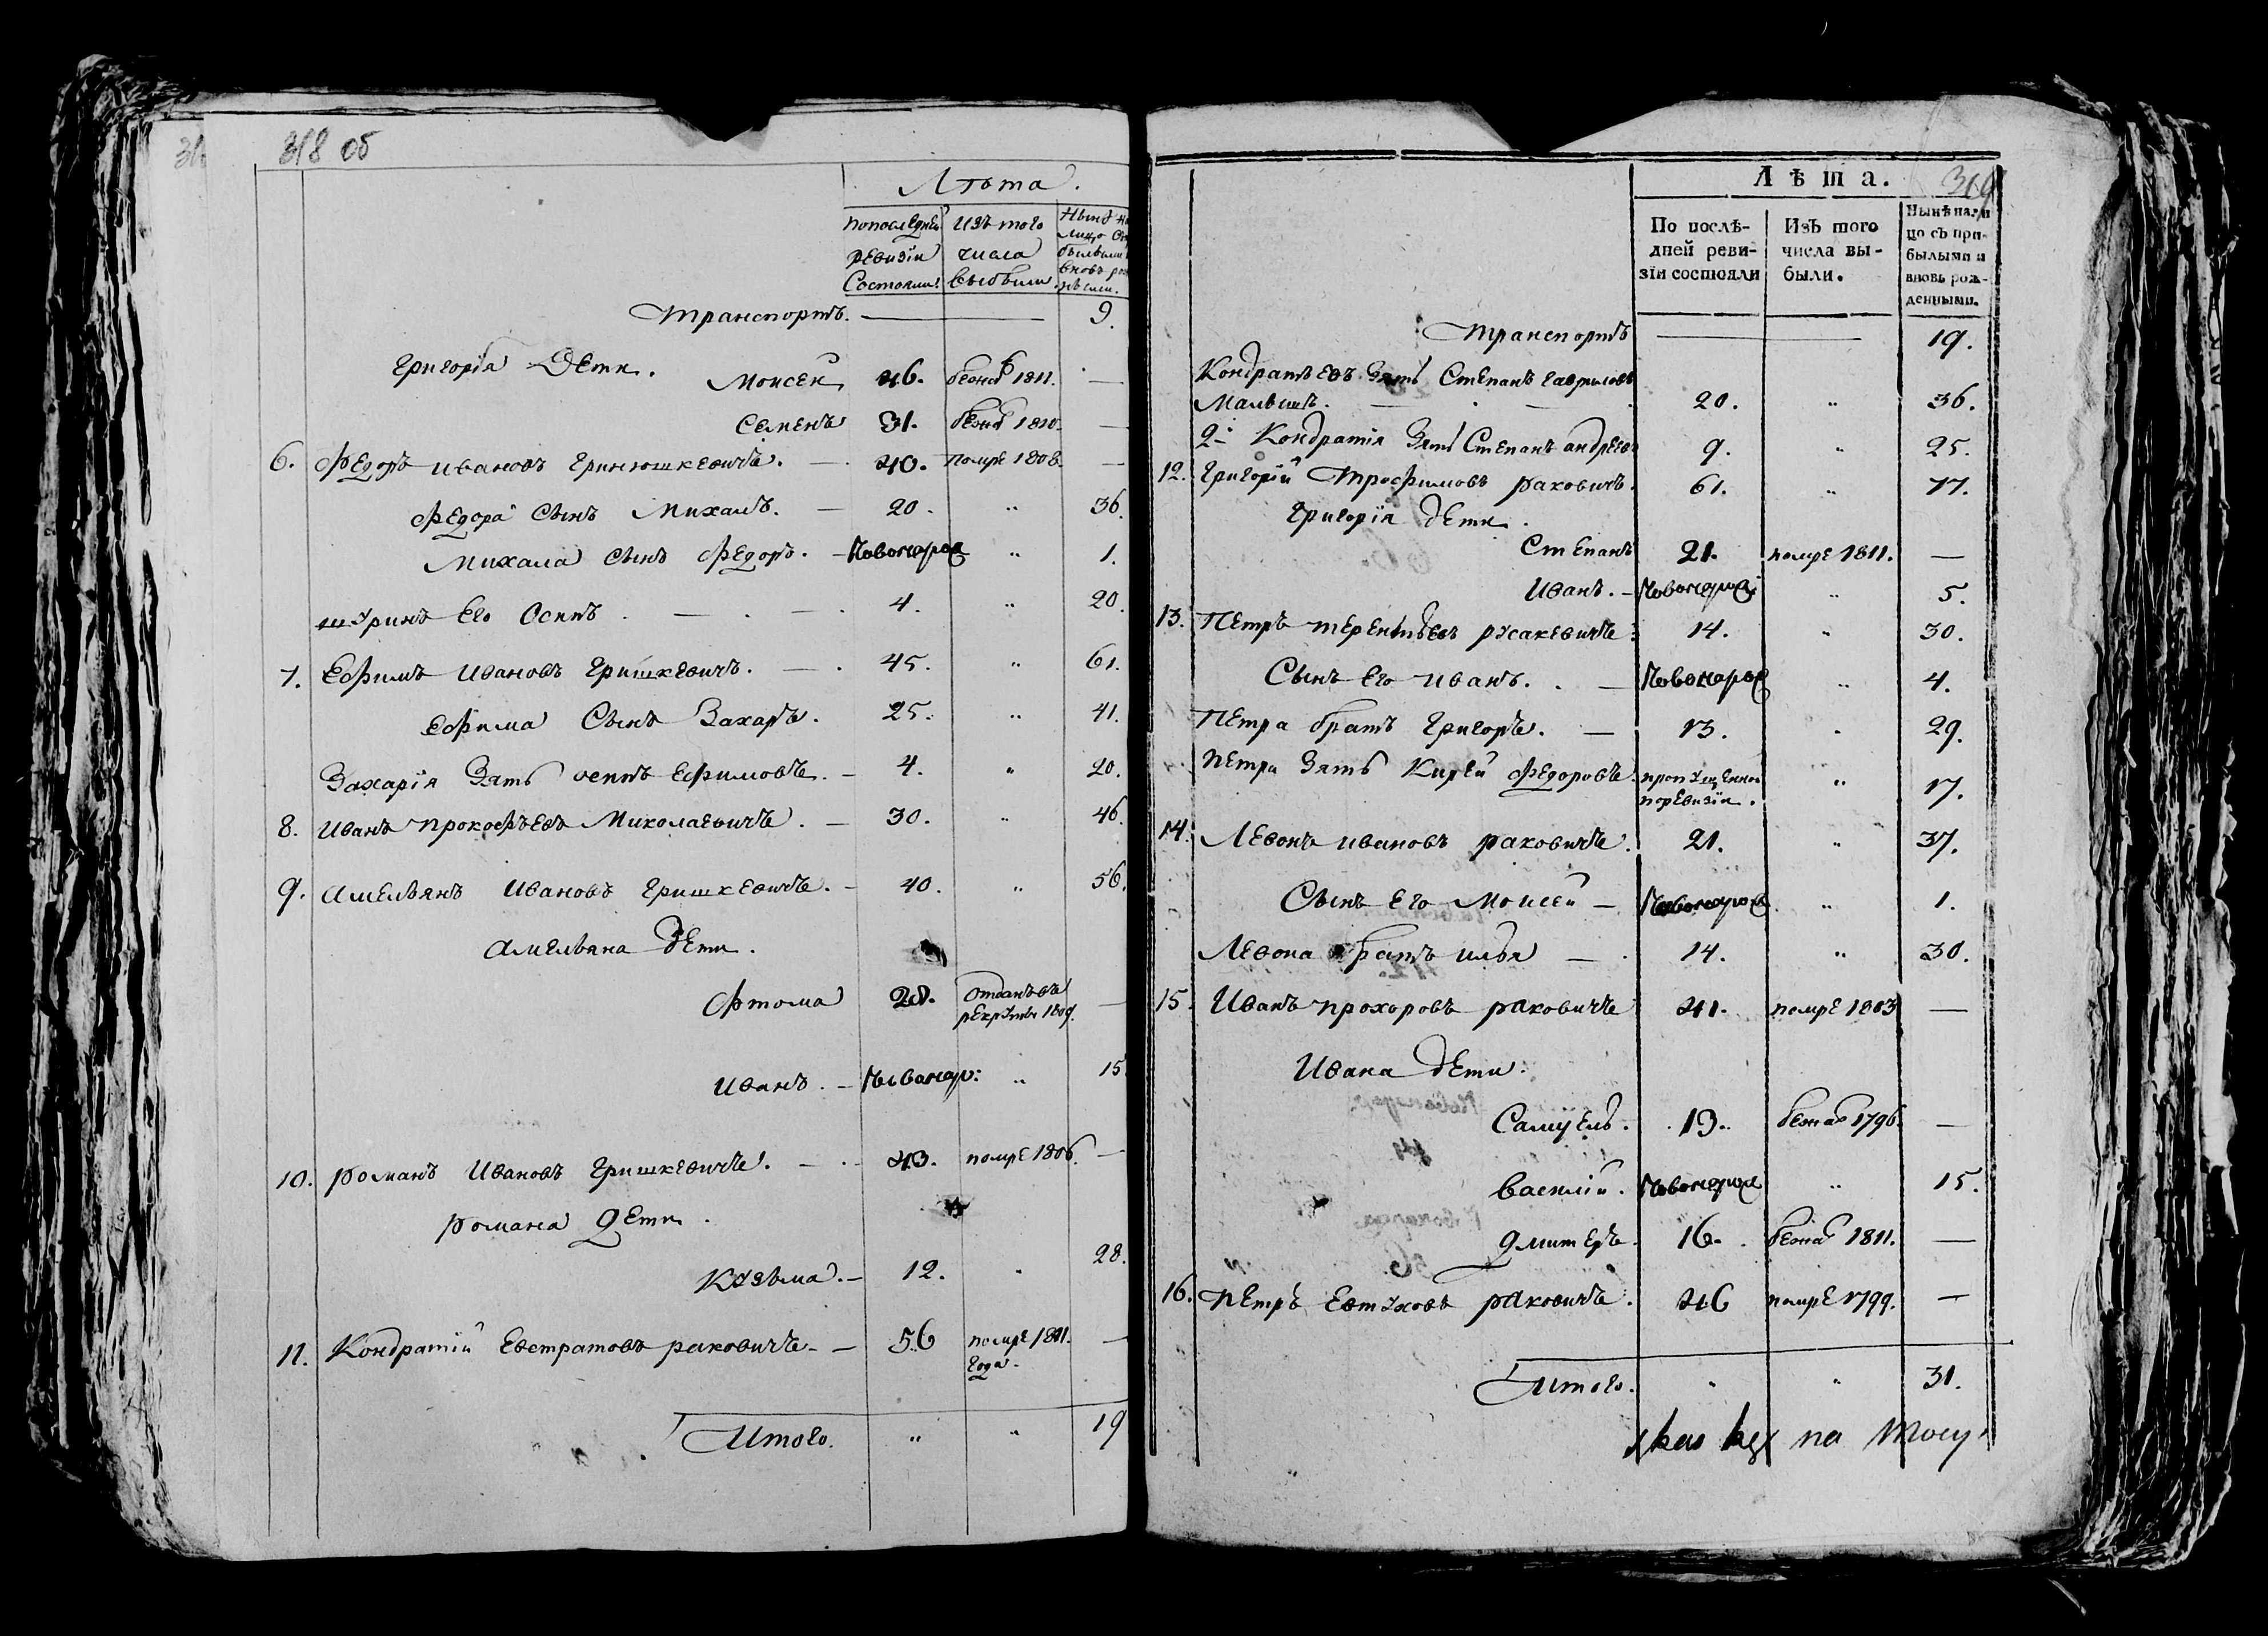 318 об
Лѣта.
по последней ревизіи состояли
изъ того числа выбыли
Нынѣ на лицо
Транспортъ. — 9.
Григорія Дети. Моисей 46. бежа 1811. —
Семенъ 31. бежа 1810. —
6. Федоръ Ивановъ Гринюшкевичъ. — 40. помре 1808. —
Федора сынъ Михалъ. — 20. " 36.
Михала сынъ Федоръ. — Новонарож " 1.
шуринъ Его Осипъ. — 4. " 20.
7. Ефимъ Ивановъ Гришкевичъ. — 45. " 61.
Ефима Сынъ Захаръ. 25. " 41.
Захарія Зять осипъ Ефимовъ. — 4. " 20.
8. Иванъ прокофьевъ Миколаевичъ. — 30. " 46.
9. Амельянъ Ивановъ Гришкевичъ. — 40. " 56.
Амельяна дети.
Фтома 28. отданъ въ рекруты 1809. —
Иванъ. — Новонар: " 15
10. Романъ Ивановъ Гришкевичъ. — 43. помре 1806. —
Романа дети.
Кузьма. — 12. " 28.
11. Кондратій Евстратовъ раковичъ — 56 помре 1811. года. —
Итого. " " 19
319
Лѣта.
По послѣдней ревизіи состояли
Изъ того числа выбыли.
Нынѣ на лицо съ прибылыми и вновь рожденными.
Транспортъ — 19.
Кондратьевъ Зять Степанъ гавриловъ
Малышъ. — 20. " 36.
2й Кондратія Зять Степанъ андреевъ 9. " 25.
12. Григорій Трофимовъ раковичъ. 61. " 77.
Григорія дети.
Степанъ 21. помре 1811. —
Иванъ. — Новонарож " 5.
13. Петръ терентьевъ русакевичъ. 14. " 30.
Сынъ Его Иванъ. — Новонарож " 4.
Петра братъ Григоръ. — 13. " 29.
Петра Зять Кирей Федоровъ. пропущенной по ревизіи. " 17.
14. Левонъ Ивановъ раковичъ. 21. " 37.
Сынъ Его Моисей — Новонарож " 1.
Левона братъ илья — 14. " 30.
15. Иванъ прохоровъ раковичъ 41. помре 1803 —
Ивана дети.
Самуель. 13. бежа 1796. —
Василій. Новонарож " 15.
Дмитеръ. 16. бежа 1811. —
16. Петръ Евтуховъ раковичъ. 46 помре 1799. —
Итого. " " 31.